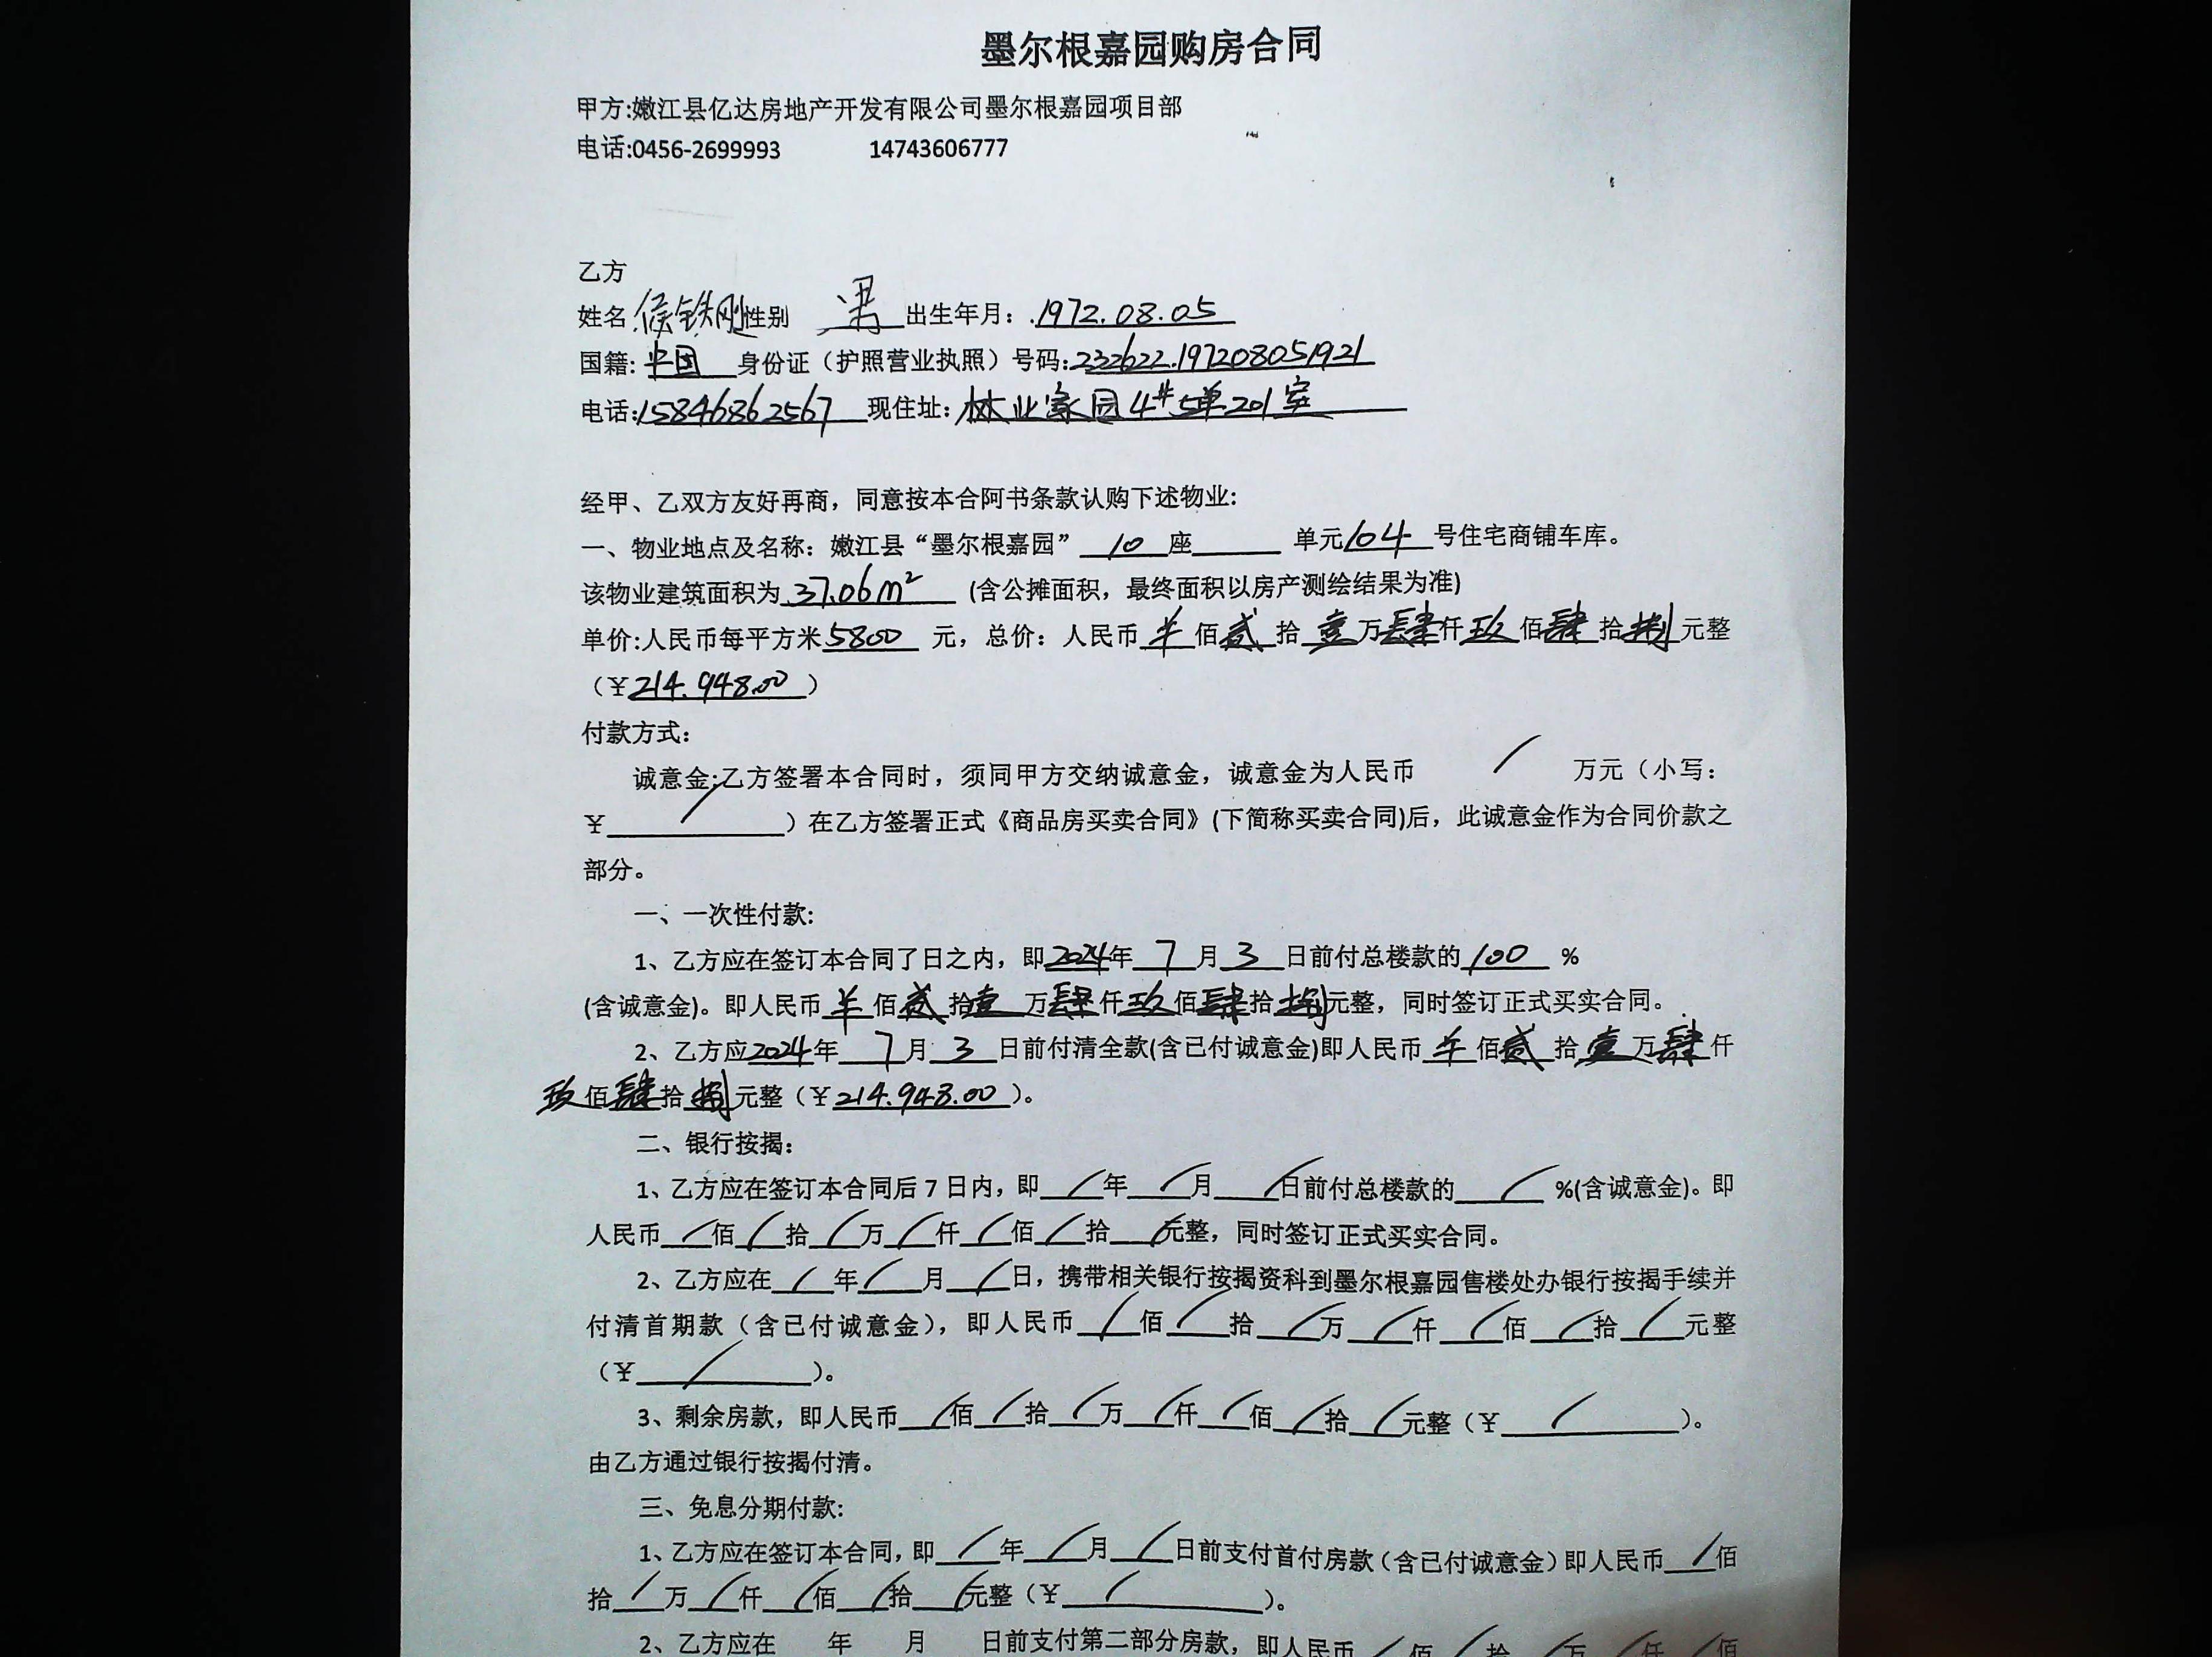 墨尔根嘉园购房合同
甲方:嫩江县亿达房地产开发有限公司墨尔根嘉园项目部
电话:0456-2699993 14743606777
乙方
姓名 侯铁刚 性别 男 出生年月：1972.08.05
国籍: 中国 身份证（护照营业执照）号码:232622197208051921
电话:15846862567 现住址: 林业家园4#5单201室
经甲、乙双方友好再商，同意按本合阿书条款认购下述物业:
一、物业地点及名称：嫩江县“墨尔根嘉园” 10 座 单元 104 号住宅商铺车库。
该物业建筑面积为 37.06m² (含公摊面积，最终面积以房产测绘结果为准)
单价:人民币每平方米 5800 元，总价：人民币 佰 贰 拾 壹 万 肆 仟 玖 佰 肆 拾 捌 元整
（￥214.948.00）
付款方式：
诚意金:乙方签署本合同时，须同甲方交纳诚意金，诚意金为人民币 / 万元（小写：
￥ / ）在乙方签署正式《商品房买卖合同》(下简称买卖合同)后，此诚意金作为合同价款之
部分。
一、一次性付款:
1、乙方应在签订本合同了日之内，即 2024 年 7 月 3 日前付总楼款的 100 %
(含诚意金)。即人民币 佰 贰 拾 壹 万 肆 仟 玖 佰 肆 拾 捌 元整，同时签订正式买实合同。
2、乙方应 2024 年 7 月 3 日前付清全款(含已付诚意金)即人民币 佰 贰 拾 壹 万 肆 仟
玖 佰 肆 拾 捌 元整（￥214.948.00）。
二、银行按揭：
1、乙方应在签订本合同后7日内，即 / 年 / 月 / 日前付总楼款的 / %(含诚意金)。即
人民币 / 佰 / 拾 / 万 / 仟 / 佰 / 拾 / 元整，同时签订正式买实合同。
2、乙方应在 / 年 / 月 / 日，携带相关银行按揭资科到墨尔根嘉园售楼处办银行按揭手续并
付清首期款（含已付诚意金），即人民币 / 佰 / 拾 / 万 / 仟 / 佰 / 拾 / 元整
（￥ / ）。
3、剩余房款，即人民币 / 佰 / 拾 / 万 / 仟 / 佰 / 拾 / 元整（￥ / ）。
由乙方通过银行按揭付清。
三、免息分期付款:
1、乙方应在签订本合同，即 / 年 / 月 / 日前支付首付房款（含已付诚意金）即人民币 / 佰
拾 / 万 / 仟 / 佰 / 拾 / 元整（￥ / ）。
2、乙方应在 年 月 日前支付第二部分房款，即人民币 / 佰 / 拾 / 万 / 仟 / 佰